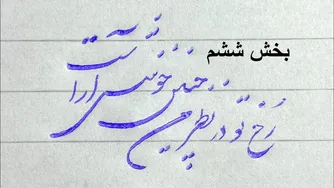 بخش ششم
رخ تو در نظر من
چنین خوشش آراست